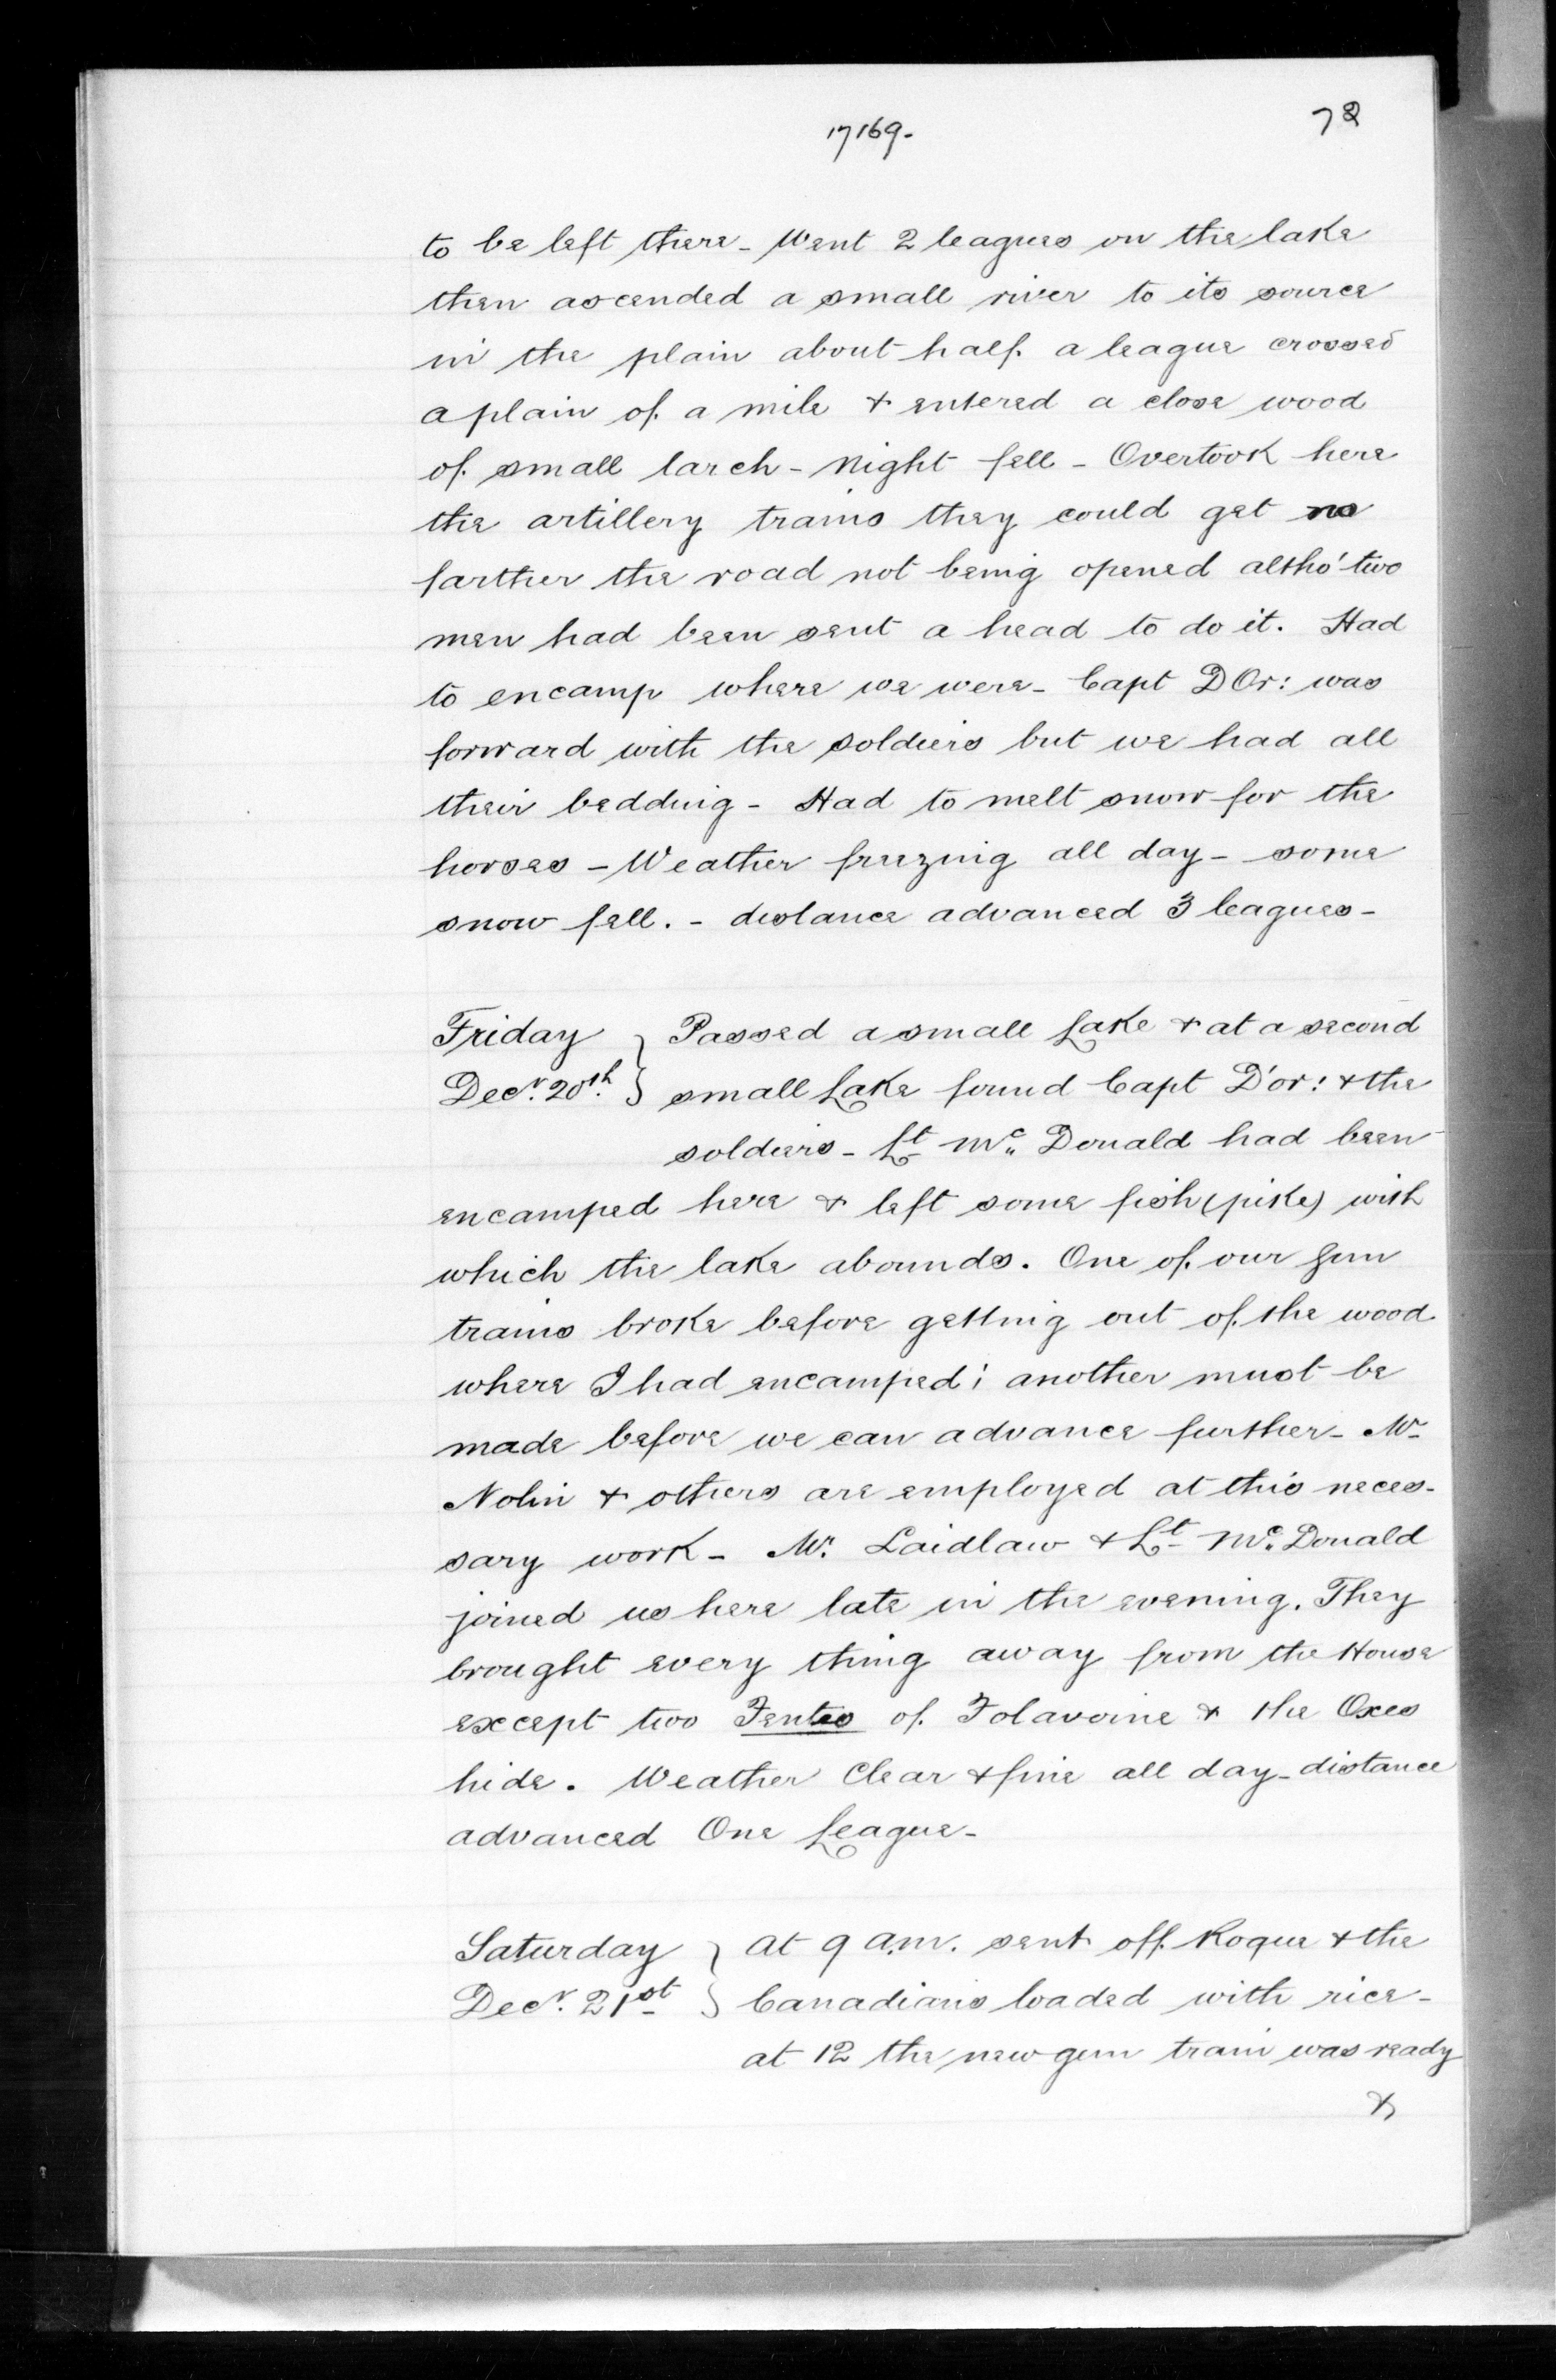 17169.
72
to be left there - Went 2 leagues on the lake
then ascended a small river to its source
in the plain about half a league crossed
a plain of a mile & entered a close wood
of small larch - Night fell - Overtook here
the artillery trains they could get no
farther the road not being opened altho' two
men had been sent a head to do it. Had
to encamp where we were - Capt D Or: was
forward with the soldiers but we had all
their bedding - Had to melt snow for the
horses - Weather freezing all day - some
snow fell. - distance advanced 3 leagues -
Friday } Passed a small Lake & at a second
Decr. 20th. } small Lake found Capt D'or: & the
soldiers - Lt Mc Donald had been
encamped here & left some fish (pike) with
which the lake abounds. One of our gun
trains broke before getting out of the wood
where I had encamped; another must be
made before we can advance further - Mr
Nolin & others are employed at this neces-
sary work - Mr. Laidlaw & Lt Mc. Donald
joined us here late in the evening. They
brought every thing away from the House
except two of Folavoine & the Oxes
hide. Weather Clear & fine all day - distance
advanced One League -
Saturday } at 9 a.m. sent off Roque & the
Decr. 21st } Canadians loaded with rice -
at 12 the new gun train was ready
&